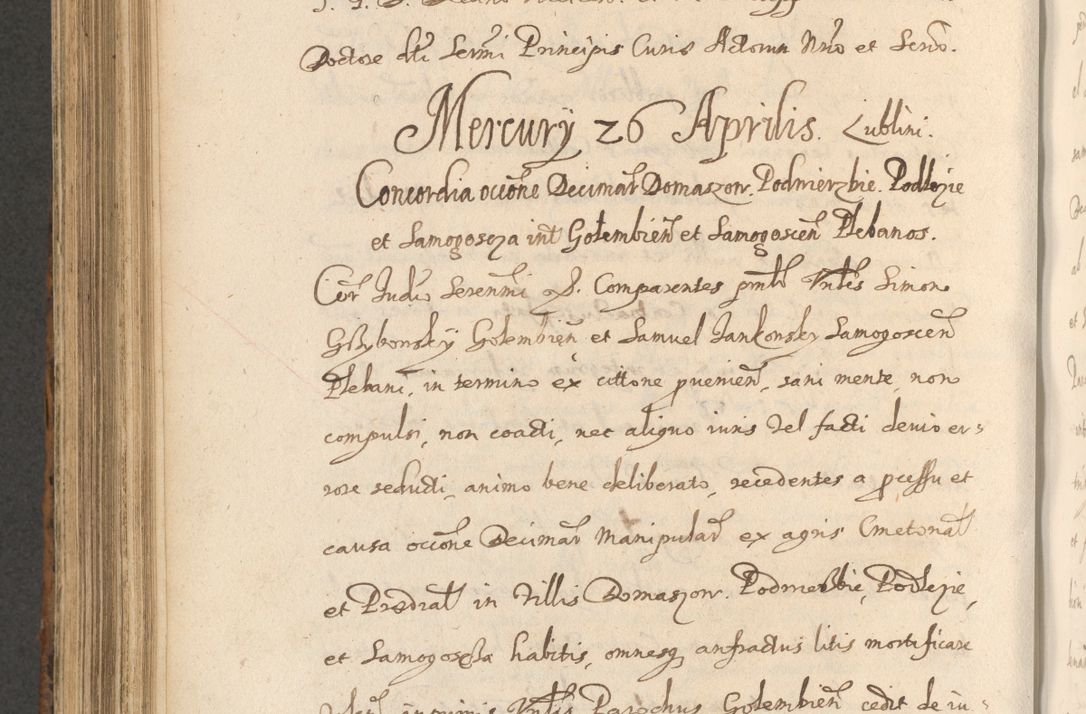 Doctore dti Sermi Principis Curis Actorum Nrio et Scrio.
Mercurÿ 26 Aprilis. Lublini.
Concordia occõne Decimar Domaszow. Podmierzbie. Podlezie
et Samogoscza int Golembień et Samogosceń Plebanos.
Cor Judio Serenmi P. Comparentes pntr Vntes Simon
Grzybowskÿ Golembień et Samuel Jankowsky Samogosceń
Plebani, in termino ex cittone pvenień, sani mente, non
compulsi, non coacti, nec aliquo iuris vel facti devio er=
rore seducti, animo bene deliberato, recedentes a pcessu et
causa occõne Decimar Manipular ex agris Cmetonal
et Prædial in Villis Domaszow. Podmerzbie, Podlezie,
et Samogoscza habitis, omnesq anfractus litis mortificare
Parochus Golembień cedit de iu=